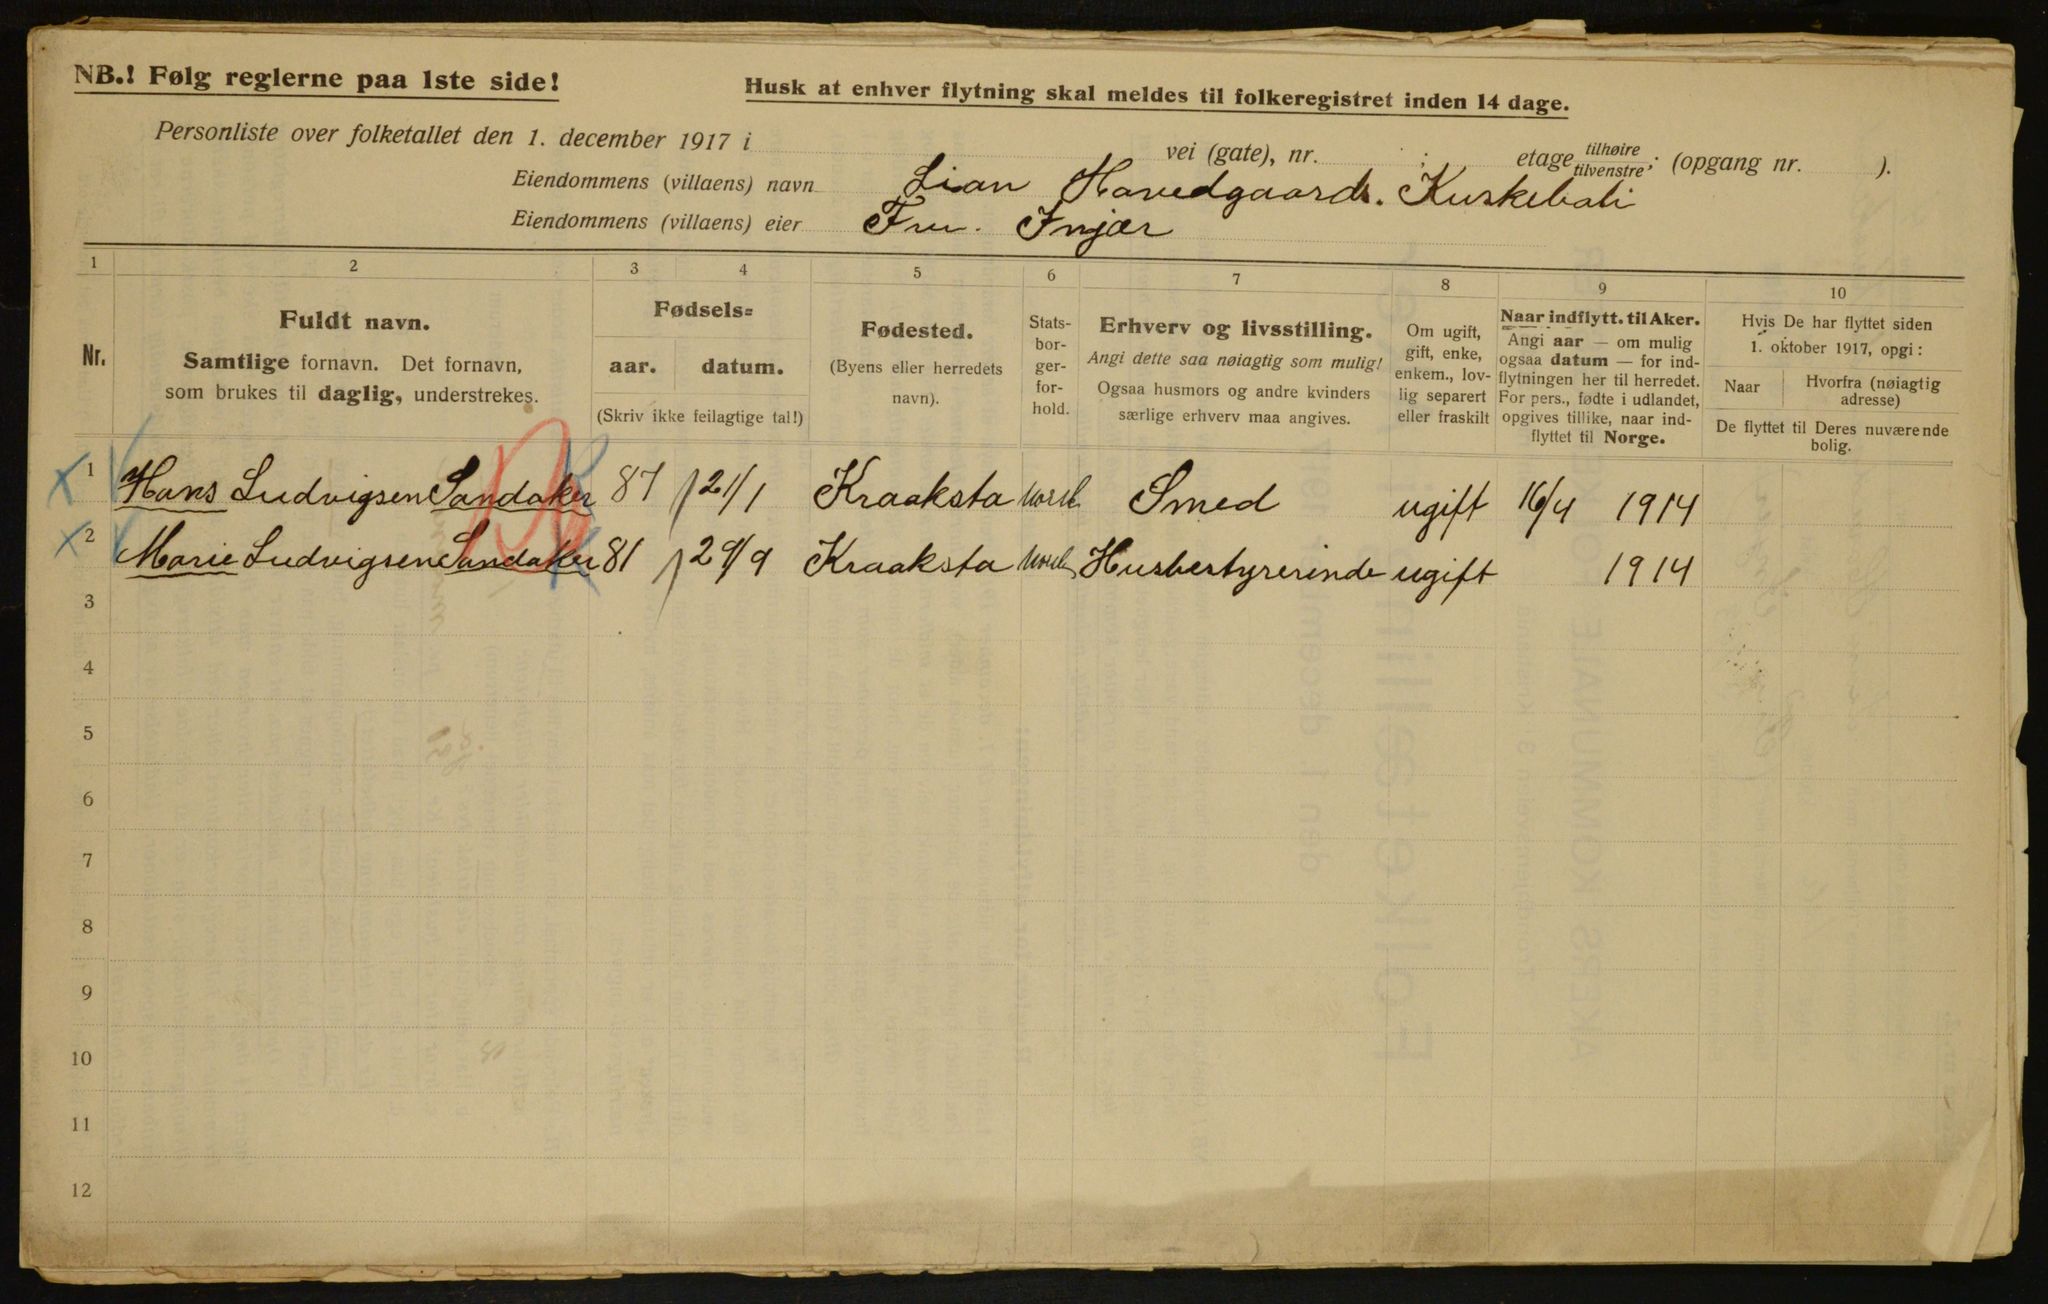 NB.! Følg reglerne paa 1ste side!
Husk at enhver flytning skal meldes til folkeregistret inden 14 dage.
Personliste over folketallet den 1. december 1917 i vei (gate), nr. ; etage tilhøire tilvenstre; (opgang nr. ).
Eiendommens (villaens) navn Lian Hovedgaard. Kuskeboli
Eiendommens (villaens) eier Fru.
1 2 3 4 5 6 7 8 9 10
Nr.
Fuldt navn.
Samtlige fornavn. Det fornavn,
som brukes til daglig, understrekes.
Fødsels=
aar. datum.
(Skriv ikke feilagtige tal!)
Fødested.
(Byens eller herredets
navn).
Stats-
bor-
ger-
for-
hold.
Erhverv og livsstilling.
Angi dette saa nøiagtig som mulig!
Ogsaa husmors og andre kvinders
særlige erhverv maa angives.
Om ugift,
gift, enke,
enkem., lov-
lig separert
eller fraskilt
Naar indflytt. til Aker.
Angi aar — om mulig
ogsaa datum — for ind-
flytningen her til herredet.
For pers., fødte i udlandet,
opgives tillike, naar ind-
flyttet til Norge.
Hvis De har flyttet siden
1. oktober 1917, opgi:
Naar
Hvorfra (nøiagtig
adresse)
De flyttet til Deres nuværende
bolig.
1 Hans Ludvigsen Sandaker 87 21/1 Kraaksta norsk Smed ugift 16/4 1914
2 Marie Ludvigsen Sandaker 81 29/9 Kraaksta norsk Husbestyrerinde ugift 1914
3
4
5
6
7
8
9
10
11
12